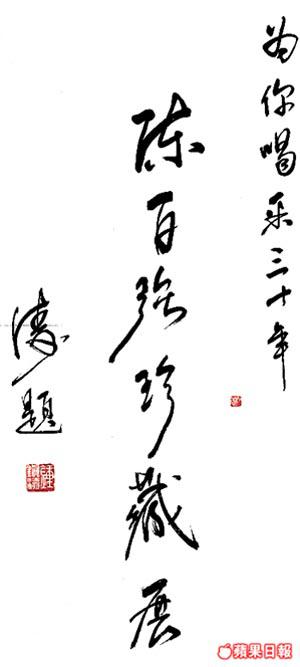 为你喝采三十年
陈百强珍藏展
涛題
蘋果日報